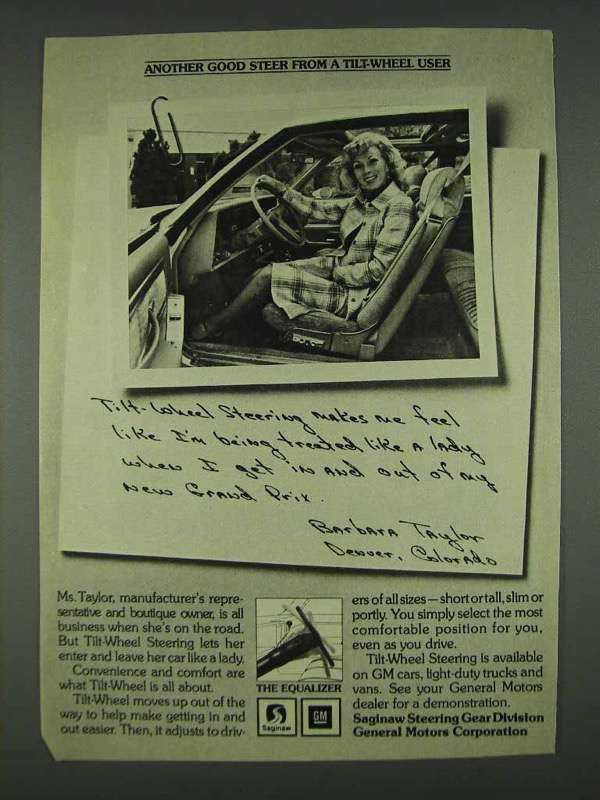 ANOTHER GOOD STEER FROM A TILT-WHEEL USER
Tilt-Wheel Steering makes me feel
like I'm being treated like a lady
when I get in and out of my
new Grand Prix.
Barbara Taylor
Denver, Colorado
Ms. Taylor, manufacturer's repre-
sentative and boutique owner, is all
business when she's on the road.
But Tilt-Wheel Steering lets her
enter and leave her car like a lady.
Convenience and comfort are
what Tilt-Wheel is all about.
Tilt-Wheel moves up out of the
way to help make getting in and
out easier. Then, it adjusts to driv-
THE EQUALIZER
Saginaw
GM
ers of all sizes — short or tall, slim or
portly. You simply select the most
comfortable position for you,
even as you drive.
Tilt-Wheel Steering is available
on GM cars, light-duty trucks and
vans. See your General Motors
dealer for a demonstration.
Saginaw Steering Gear Division
General Motors Corporation